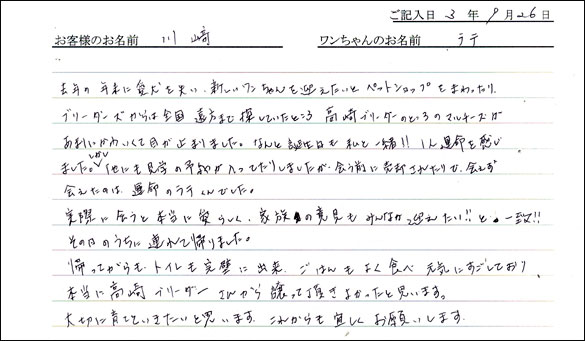 ご記入日 3 年 9 月 26 日
お客様のお名前 川﨑 ワンちゃんのお名前 ラテ
去年の年末に愛犬を失い、新しいワンちゃんを迎えたいとペットショップをまわったり、
ブリーダーズからは全国遠方まで探していたところ高崎ブリーダーのところのマルチーズが
あまりにかわいくて目が止まりました。なんと誕生日も私と一緒!! 1人運命を感じ
ました。しかし他にも見学の予約が入ってたりしましたが、会う前に売却されたりで、会えず
会えたのは、運命のラテくんでした。
実際に会うと本当に愛らしく、家族の意見もみんな迎えたい!!と、一致!!
その日のうちに連れて帰りました。
帰ってからも、トイレも完璧に出来、ごはんもよく食べ元気にすごしており
本当に高崎ブリーダーさんから譲って頂きよかったと思います。
大切に育てていきたいと思います。これからも宜しくお願いします。